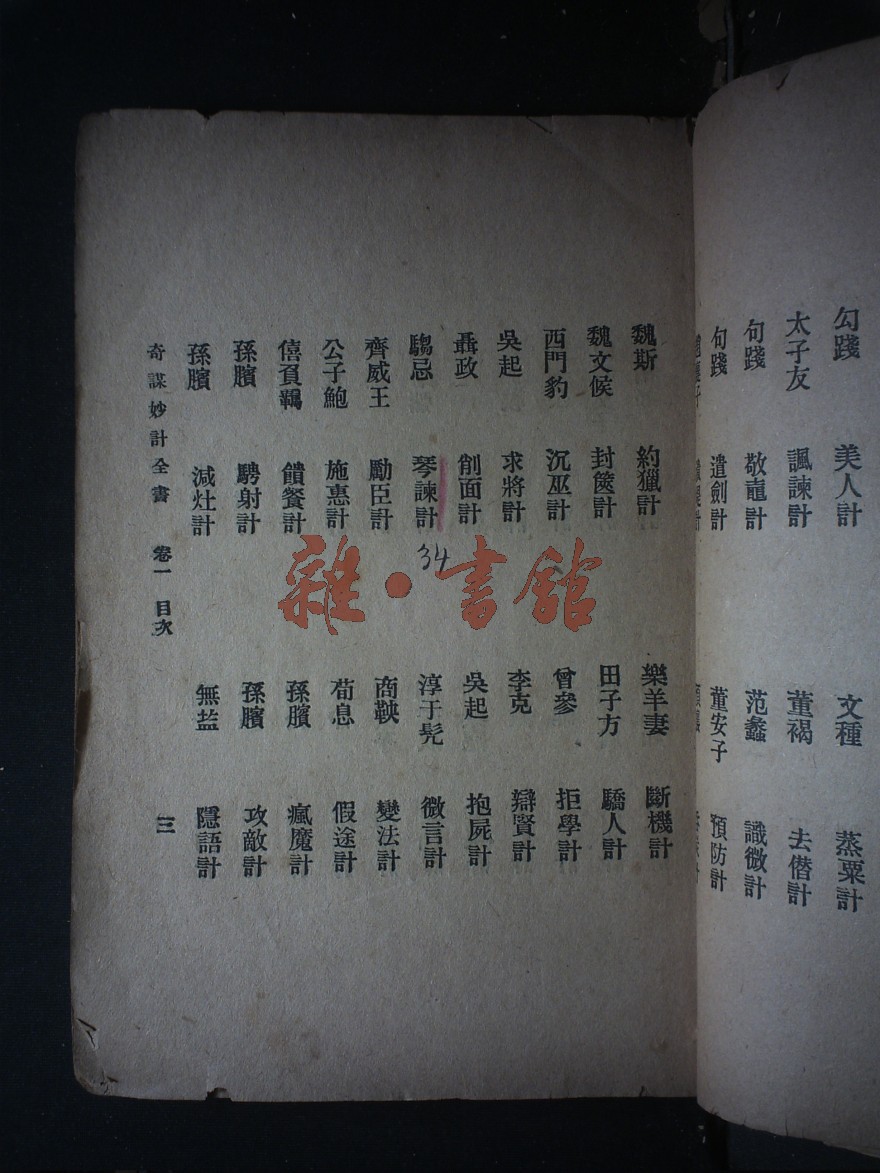 勾踐　美人計　文種　蒸粟計
太子友　諷諫計　董褐　去僭計
句踐　敬鼃計　范蠡　識微計
句踐　遣劍計　董安子　預防計
魏斯　約獵計　樂羊妻　斷機計
魏文候　封篋計　田子方　驕人計
西門豹　沉巫計　曾參　拒學計
吳起　求將計　李克　辯賢計
聶政　削面計　吳起　抱屍計
騶忌　琴諫計　淳于髠　微言計
34
齊威王　勵臣計　商鞅　變法計
公子鮑　施惠計　荀息　假途計
僖負羈　饋餐計　孫臏　瘋魔計
孫臏　騁射計　孫臏　攻敵計
孫臏　減灶計　無盐　隱語計
奇謀妙計全書　卷一　目次　三
雜·書館